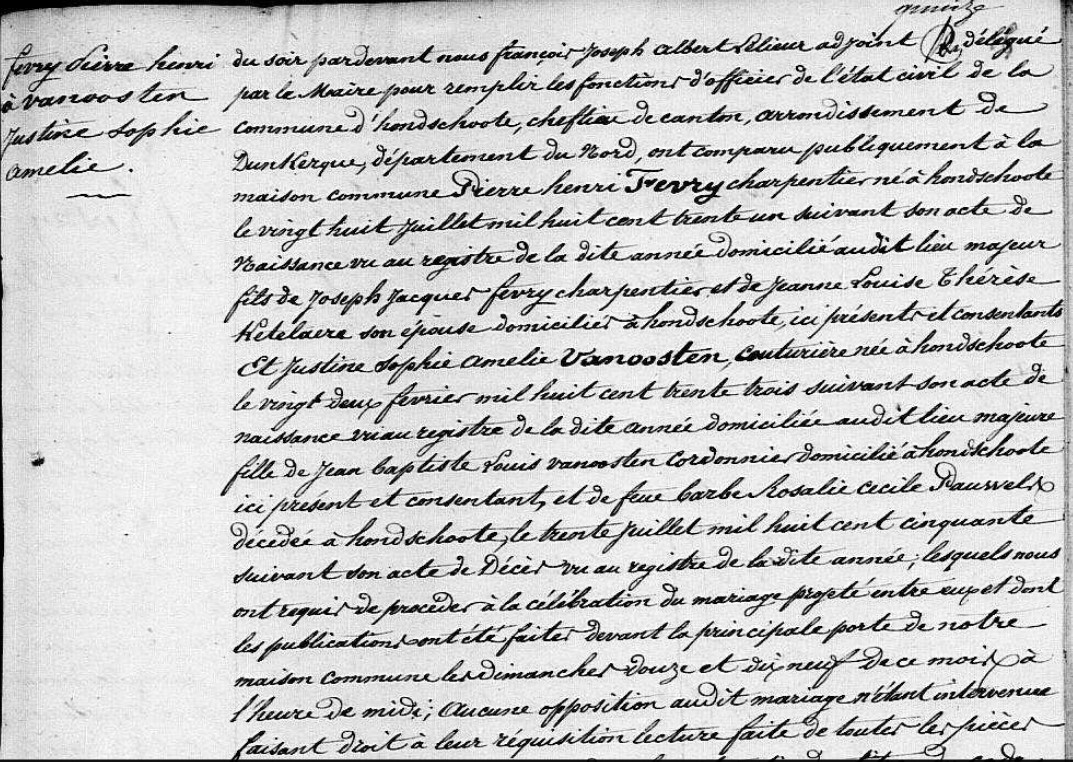 fevry Pierre henri
à vanoosten
Justine Sophie
Amelie.
du soir pardevant nous françois Joseph Albert Lelieur adjoint délégué
par le Maire pour remplir les fonctions d'officier de l'état civil de la
commune d'hondschoote, cheflieu de canton, arrondissement de
Dunkerque, département du Nord, ont comparu publiquement à la
maison commune Pierre henri Fevry charpentier né à hondschoote
le vingt huit Juillet mil huit cent trente un suivant son acte de
Naissance vu au registre de la dite année domicilié audit lieu majeur
fils de Joseph Jacques fevry charpentier et de Jeanne Louise Thérèse
Ketelaere son épouse domiciliés à hondschoote, ici présents et consentants
Et Justine Sophie Amelie Vanoosten, couturière née à hondschoote
le vingt deux fevrier mil huit cent trente trois suivant son acte de
naissance vu au registre de la dite année domiciliée audit lieu majeure
fille de Jean baptiste Louis vanoosten cordonnier domicilié à hondschoote
ici présent et consentant, et de feue barbe Rosalie Cecile Pauwels
décédée à hondschoote, le trente Juillet mil huit cent cinquante
suivant son acte de Décès vu au registre de la dite année; lesquels nous
ont requis de procéder à la célébration du mariage projeté entre eux et dont
les publications ont été faites devant la principale porte de notre
maison commune les dimanches douze et dix neuf de ce mois à
l'heure de midi; Aucune opposition audit mariage n'étant intervenue
faisant droit à leur réquisition lecture faite de toutes les pièces